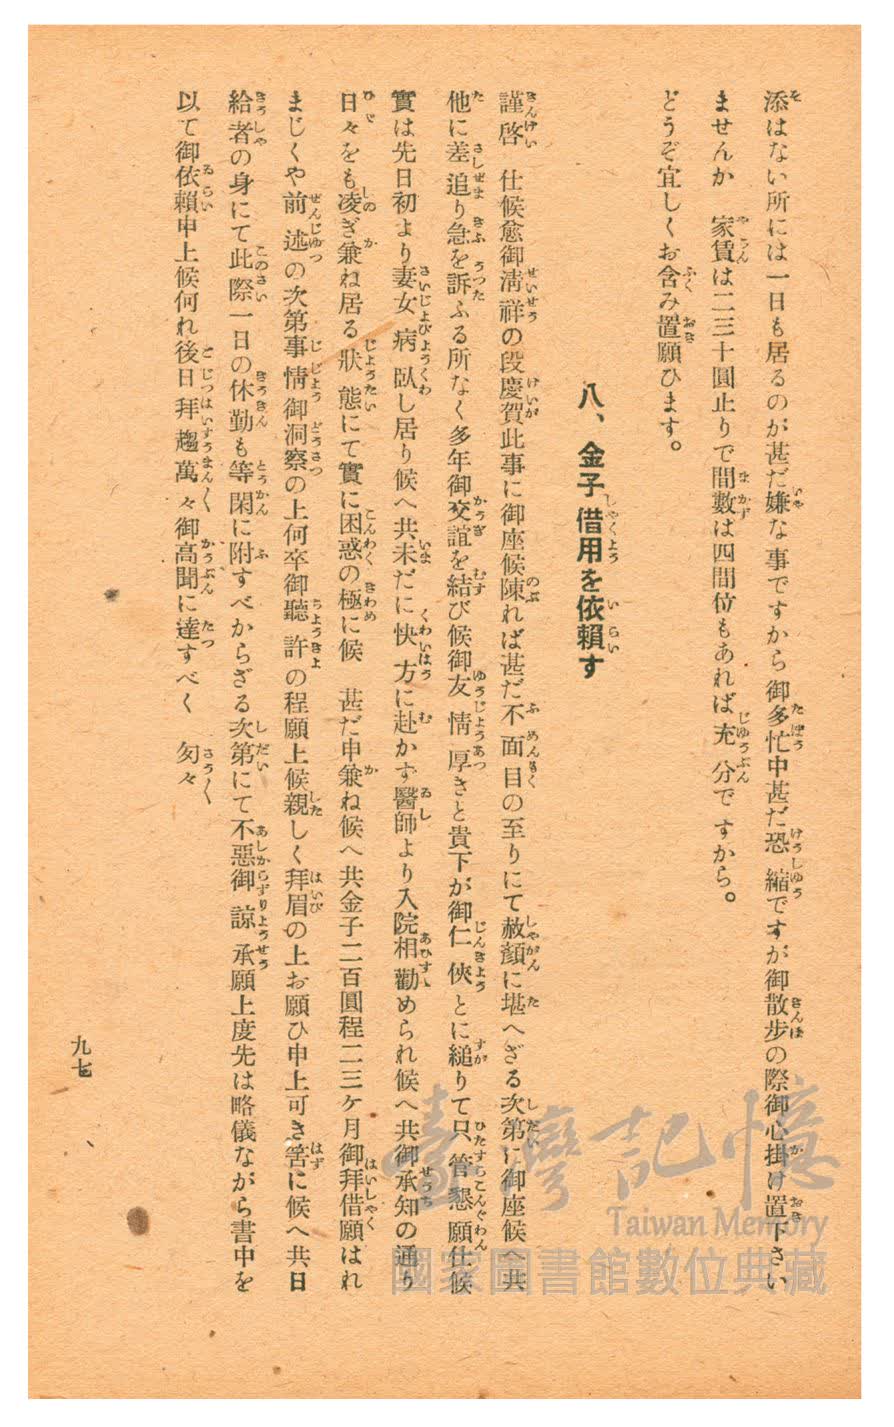 添はない所には一日も居るのが甚だ嫌な事ですから御多忙中甚だ恐縮ですが御散步の際御心掛け置下さい
ませんか　家賃は二三十圓止りで間數は四間位もあれば充分ですから。
どうぞ宜しくお含み置願ひます。
八、金子借用を依賴す
謹啓　仕候愈御淸祥の段慶賀此事に御座候陳れば甚だ不面目の至りにて赦顏に堪へざる次第に御座候へ共
他に差追り急を訴ふる所なく多年御交誼を結び候御友情厚きと貴下が御仁俠とに縋りて只管懇願仕候
實は先日初より妻女病臥し居り候へ共未だに快方に赴かず醫師より入院相勸められ候へ共御承知の通り
日々をも凌ぎ兼ね居る狀態にて實に困惑の極に候　甚だ申兼ね候へ共金子二百圓程二三ケ月御拜借願はれ
まじくや前述の次第事情御洞察の上何卒御聽許の程願上候親しく拜眉の上お願ひ申上可き筈に候へ共日
給者の身にて此際一日の休勤も等閑に附すべからざる次第にて不惡御諒承願上度先は略儀ながら書中を
以て御依賴申上候何れ後日拜趨萬々御高聞に達すべく　匆々
九七
臺灣記憶
Taiwan Memory
國家圖書館數位典藏